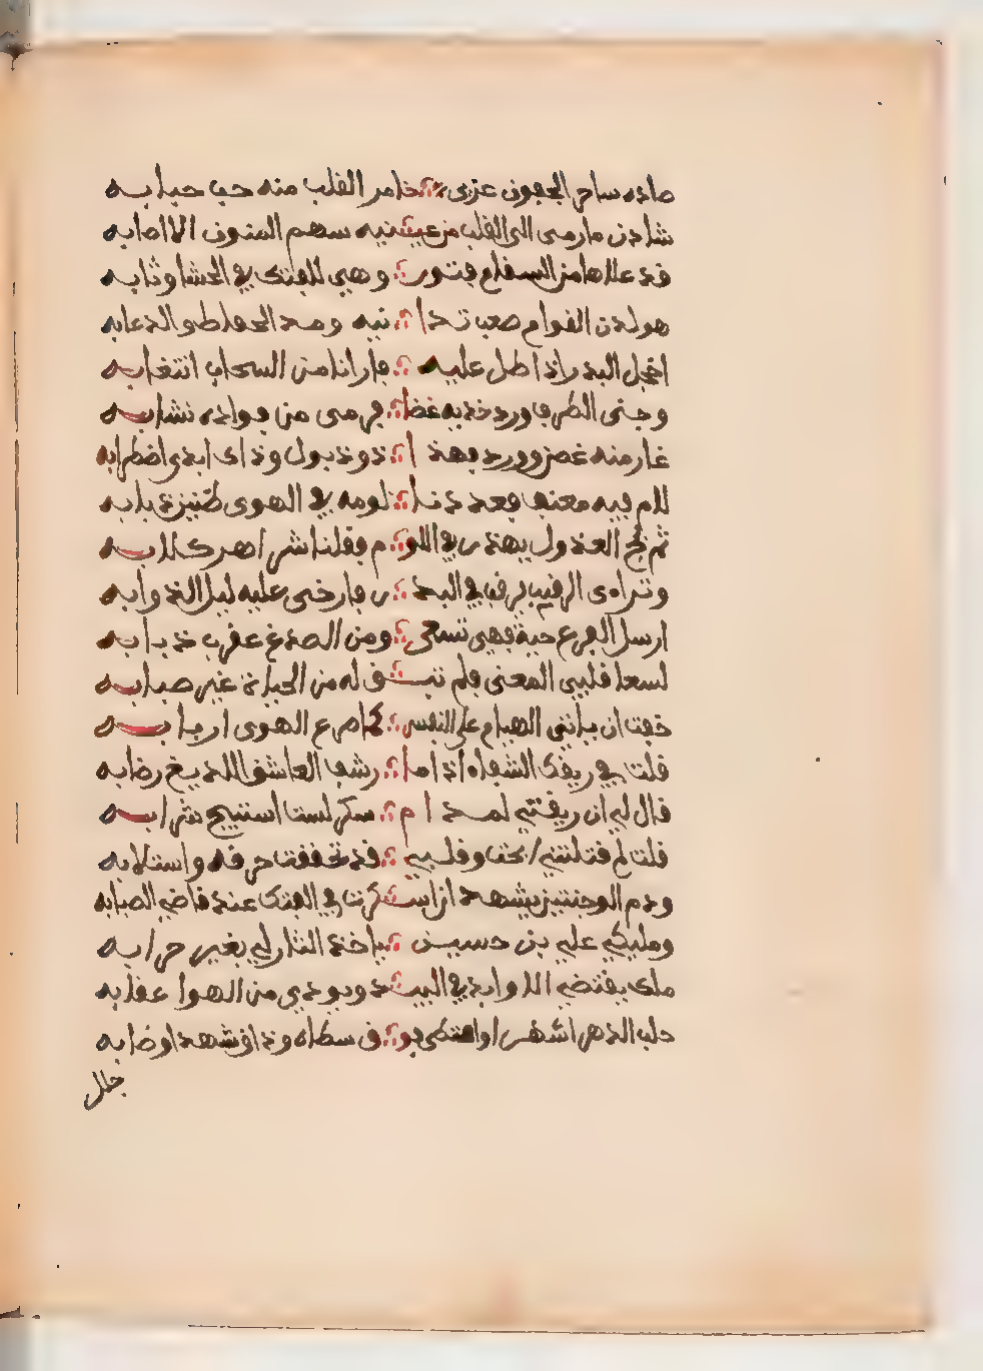 صاده ساحر الجفون غزى خامر القلب منه حب حبابه
شادن مارمى الى القلب من عينيه سهم المنون الا اصابه
قد علاها من السقام فتور وهي للفتك في الحشا وثابه
هو لدن القوام صعب تدانيه ومد الحفاظ والدعابه
اخجل البدر اذ اطل عليه فارانا من السحاب انتقابه
وجنى الطرف ورد خديه غضا فرمى من فواده نشابه
غار منه غصن وورد فهذا ذو ذبول وذاك ابدى اضطرابه
لام فيه معنف فعددنا لومه في الهوى طنين ذبابه
ثم لج العذول يهذر في اللوم فقلنا شر اهر كلابه
وتراءى الرقيب يرقب في البدر فارخى عليه ليل الذوابه
ارسل الفرع حية فهي تسعى ومن الصدغ عقرب دبابه
لسعا قلبي المعنى فلم تبق له من الحياة غير صبابه
خفت ان ياتي الهيام على النفس كما صرع الهوى اربابه
قلت في ريقك الشفاء اذا ما رشف العاشق اللديغ رضابه
قال لي ان ريقتي لمدام سكر لست استبيح شرابه
قلت لم قتلتني وقلبي قد تخففت حرقه واستلابه
ودم الوجنتين يشهد ان است في الفتك عند قاضي الصبابه
ومليكي علي بن حسين ياخذ الثار لي بغير حرابه
ملك يقتضي الاوابد في البيد ويودي من الهوا عقابه
حلب الدهر اشطرا وامتطى فوق سطاه وذاق شهدا وصابه
جلل